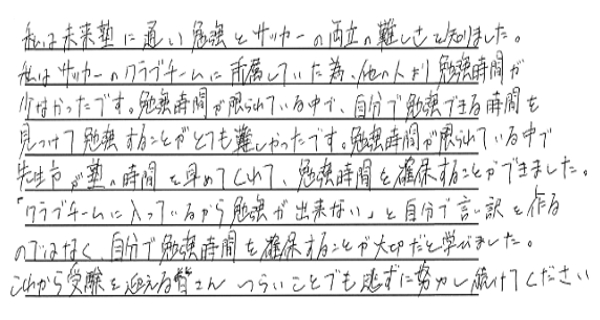 私は未来塾に通い勉強とサッカーの両立の難しさを知りました。
私はサッカーのクラブチームに所属していた為、他の人より勉強時間が
少なかったです。勉強時間が限られている中で、自分で勉強できる時間を
見つけて勉強することがとても難しかったです。勉強時間が限られている中で
先生方が塾の時間を早めてくれて、勉強時間を確保することができました。
「クラブチームに入っているから勉強が出来ない」と自分で言い訳を作る
のではなく、自分で勉強時間を確保することが大切だと学びました。
これから受験を迎える皆さん つらいことでも逃ずに努力し続けてください